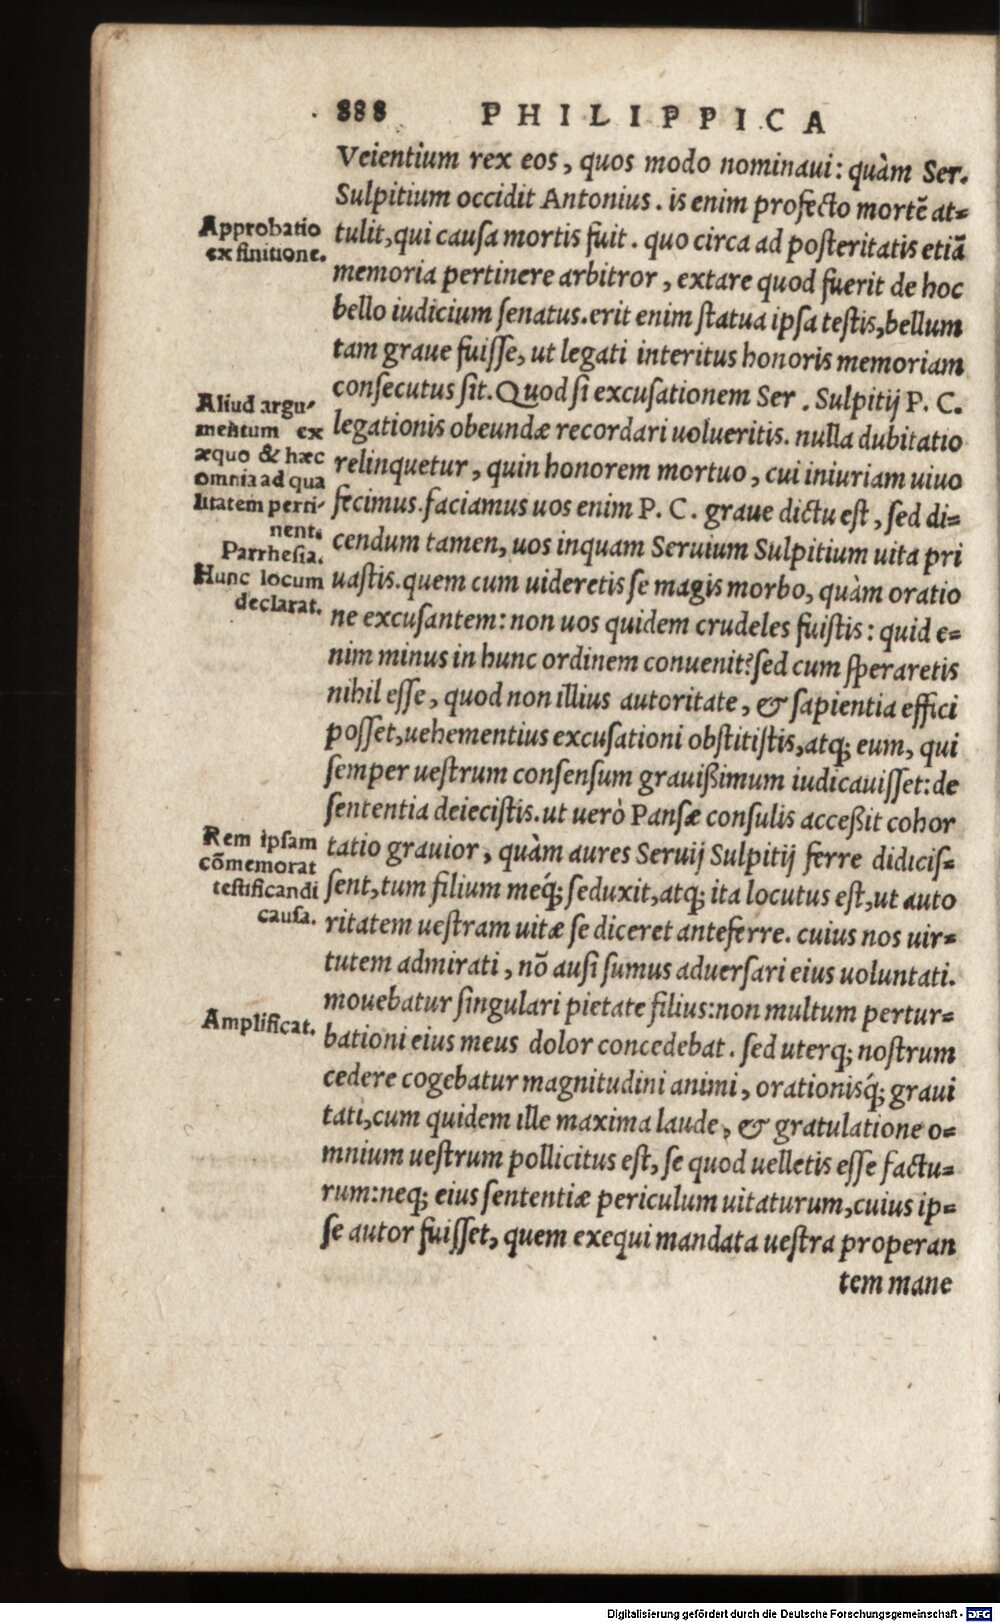 888 PHILIPPICA
Veientium rex eos, quos modo nominaui: quàm Ser.
Sulpitium occidit Antonius. is enim profecto mortẽ at=
tulit, qui causa mortis fuit. quo circa ad posteritatis etiã
memoria pertinere arbitror, extare quod fuerit de hoc
bello iudicium senatus. erit enim statua ipsa testis, bellum
tam graue fuisse, ut legati interitus honoris memoriam
consecutus sit. Quod si excusationem Ser. Sulpitij P. C.
legationis obeundæ recordari uolueritis. nulla dubitatio
relinquetur, quin honorem mortuo, cui iniuriam uiuo
fecimus. faciamus uos enim P. C. graue dictu est, sed di=
cendum tamen, uos inquam Seruium Sulpitium uita pri
uastis. quem cum uideretis se magis morbo, quàm oratio
ne excusantem: non uos quidem crudeles fuistis: quid e=
nim minus in hunc ordinem conuenit? sed cum speraretis
nihil esse, quod non illius autoritate, & sapientia effici
posset, uehementius excusationi obstitistis, atq; eum, qui
semper uestrum consensum grauißimum iudicauisset: de
sententia deiecistis. ut uerò Pansæ consulis acceßit cohor
tatio grauior, quàm aures Seruij Sulpitij ferre didicis=
sent, tum filium meq́; seduxit, atq; ita locutus est, ut auto
ritatem uestram uitæ se diceret anteferre. cuius nos uir=
tutem admirati, nõ ausi sumus aduersari eius uoluntati.
mouebatur singulari pietate filius: non multum pertur=
bationi eius meus dolor concedebat. sed uterq; nostrum
cedere cogebatur magnitudini animi, orationisq́; graui
tati, cum quidem ille maxima laude, & gratulatione o=
mnium uestrum pollicitus est, se quod uelletis esse factu=
rum: neq; eius sententiæ periculum uitaturum, cuius ip=
se autor fuisset, quem exequi mandata uestra properan
tem mane
Approbatio
ex finitione.
Aliud argu-
mentum ex
æquo & hæc
omnia ad qua
litatem perti-
nent.
Parrhesia.
Hunc locum
declarat.
Rem ipsam
cõmemorat
testificandi
causa.
Amplificat.
Digitalisierung gefördert durch die Deutsche Forschungsgemeinschaft - DFG